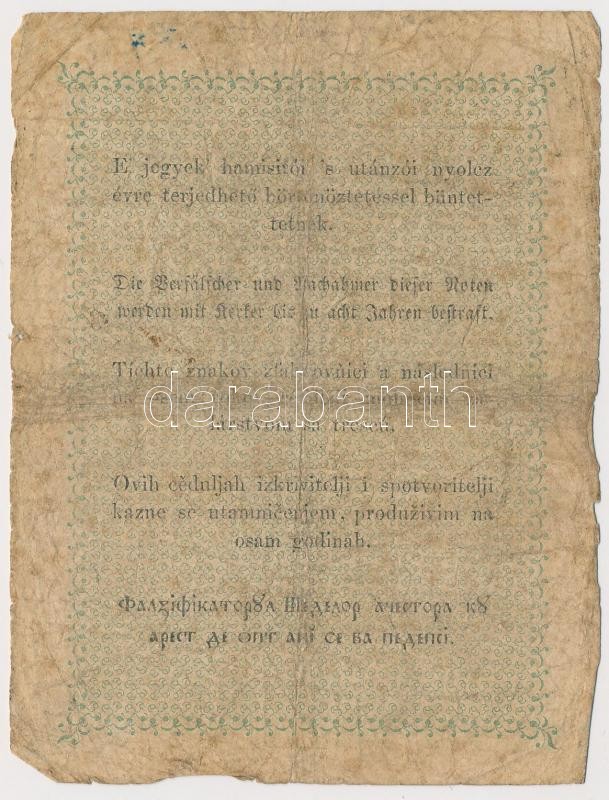 E jegyek hamisitói 's utánzói nyolcz
évre terjedhető börtönöztetéssel büntet-
tetnek.
Die Verfälscher und Nachahmer dieser Noten
werden mit Kerker bis zu acht Jahren bestraft.
Tíchto znakov a následníci
na
sa
Ovih cèduljah izkrivitelji i spotvoritelji
kazne se utamničenjem, produživim na
osam godinah.
Фалзіфікаторꙋл Шеделор ачестора кꙋ
арест де опт анї се ва педепсі.
darabanth